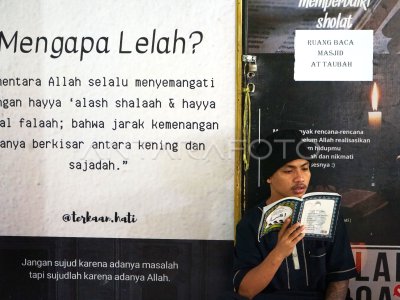 Mengapa Lelah?
mentara Allah selalu menyemangati
ngan hayya ‘alash shalaah & hayya
al falaah; bahwa jarak kemenangan
anya berkisar antara kening dan
sajadah.”
@terkaan.hati
Jangan sujud karena adanya masalah
tapi sujudlah karena adanya Allah.
memperbaiki
sholat
RUANG BACA
MASJID
AT TAUBAH
nyak rencana-rencana
elum Allah realisasikan
m hidupmu
h dan nikmati
sesnya :)
ANTARAFOTO